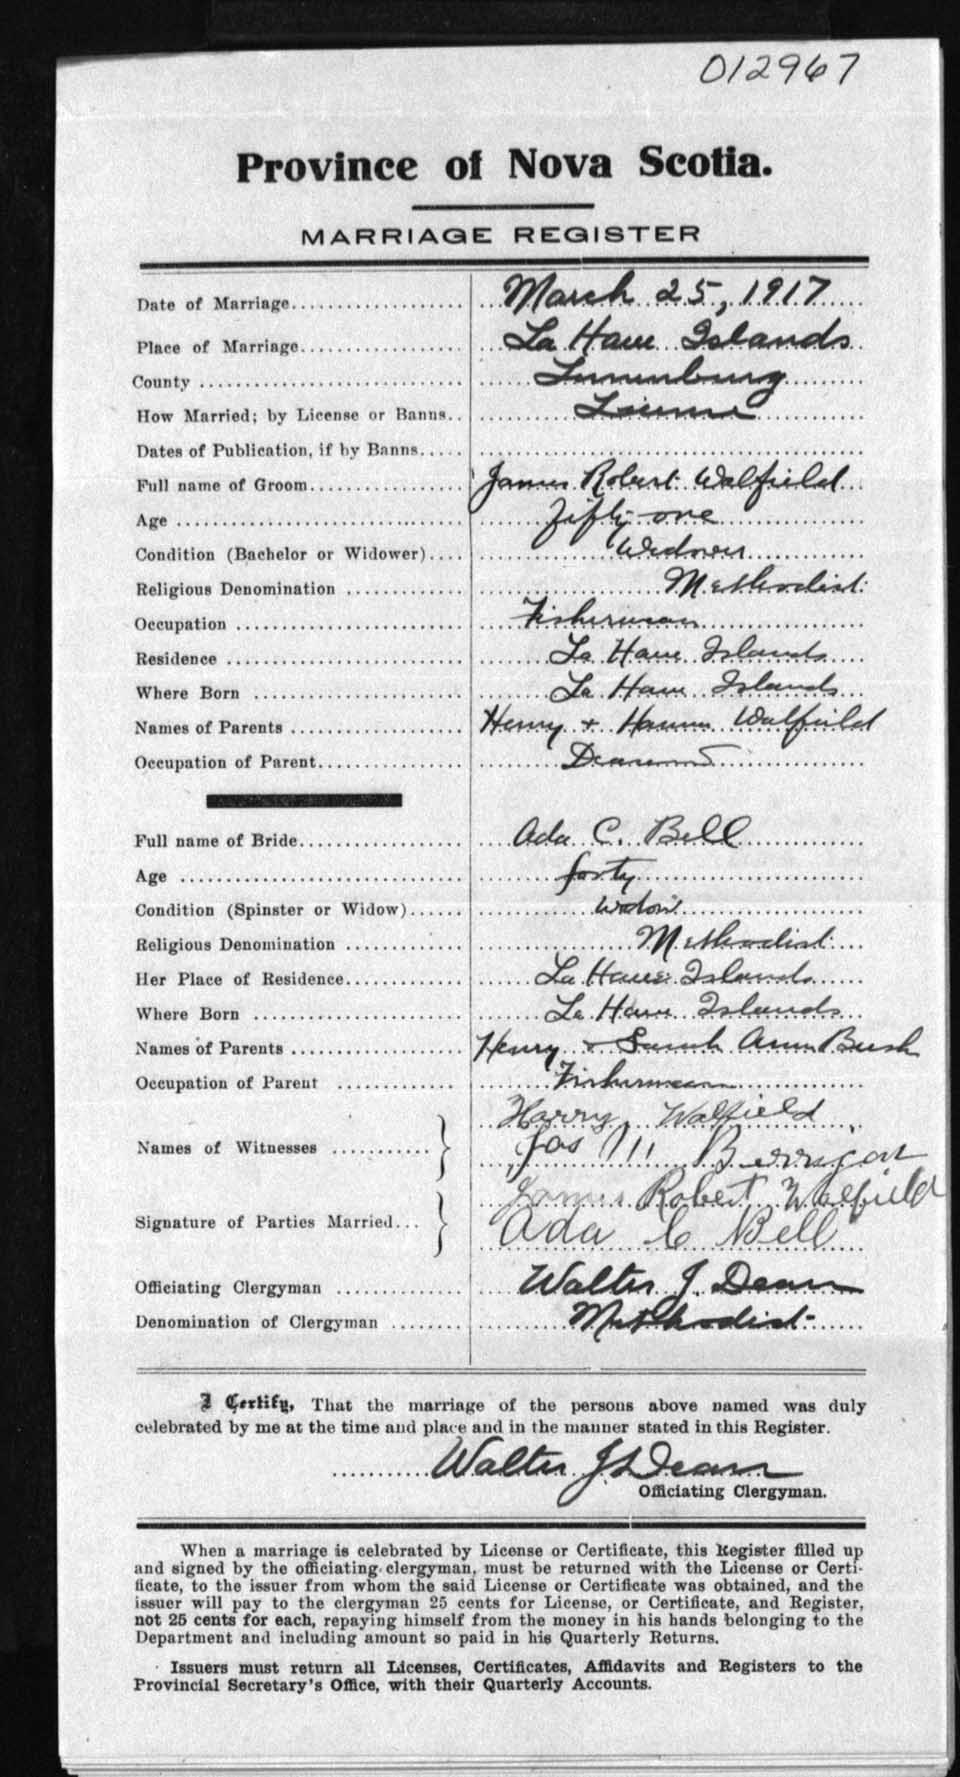 012967
Province of Nova Scotia.
MARRIAGE REGISTER
Date of Marriage.................... March 25, 1917
Place of Marriage................... La Have Islands
County ............................ Lunenburg
How Married; by License or Banns.. License
Dates of Publication, if by Banns.....
Full name of Groom.................. James Robert Walfield
Age ............................... fifty-one
Condition (Bachelor or Widower).... Widower
Religious Denomination ............. Methodist
Occupation ......................... Fisherman
Residence .......................... La Have Islands
Where Born ....................... La Have Islands
Names of Parents ................... Henry + Walfield
Occupation of Parent................
Full name of Bride.................. Ada C. Bell
Age ............................... forty
Condition (Spinster or Widow)...... Widow
Religious Denomination ............. Methodist
Her Place of Residence.............. La Have Islands
Where Born ....................... La Have Islands
Names of Parents ................... Henry + Sarah Ann Bush
Occupation of Parent ............... Fisherman
Names of Witnesses ........... Harry Walfield
Jas M Berrigan
Signature of Parties Married... James Robert Walfield
Ada C Bell
Officiating Clergyman ............... Walter J. Dean
Denomination of Clergyman ........ Methodist
I Certify, That the marriage of the persons above named was duly
celebrated by me at the time and place and in the manner stated in this Register.
Walter J. Dean
Officiating Clergyman.
When a marriage is celebrated by License or Certificate, this Register filled up
and signed by the officiating clergyman, must be returned with the License or Certi-
ficate, to the issuer from whom the said License or Certificate was obtained, and the
issuer will pay to the clergyman 25 cents for License, or Certificate, and Register,
not 25 cents for each, repaying himself from the money in his hands belonging to the
Department and including amount so paid in his Quarterly Returns.
Issuers must return all Licenses, Certificates, Affidavits and Registers to the
Provincial Secretary's Office, with their Quarterly Accounts.